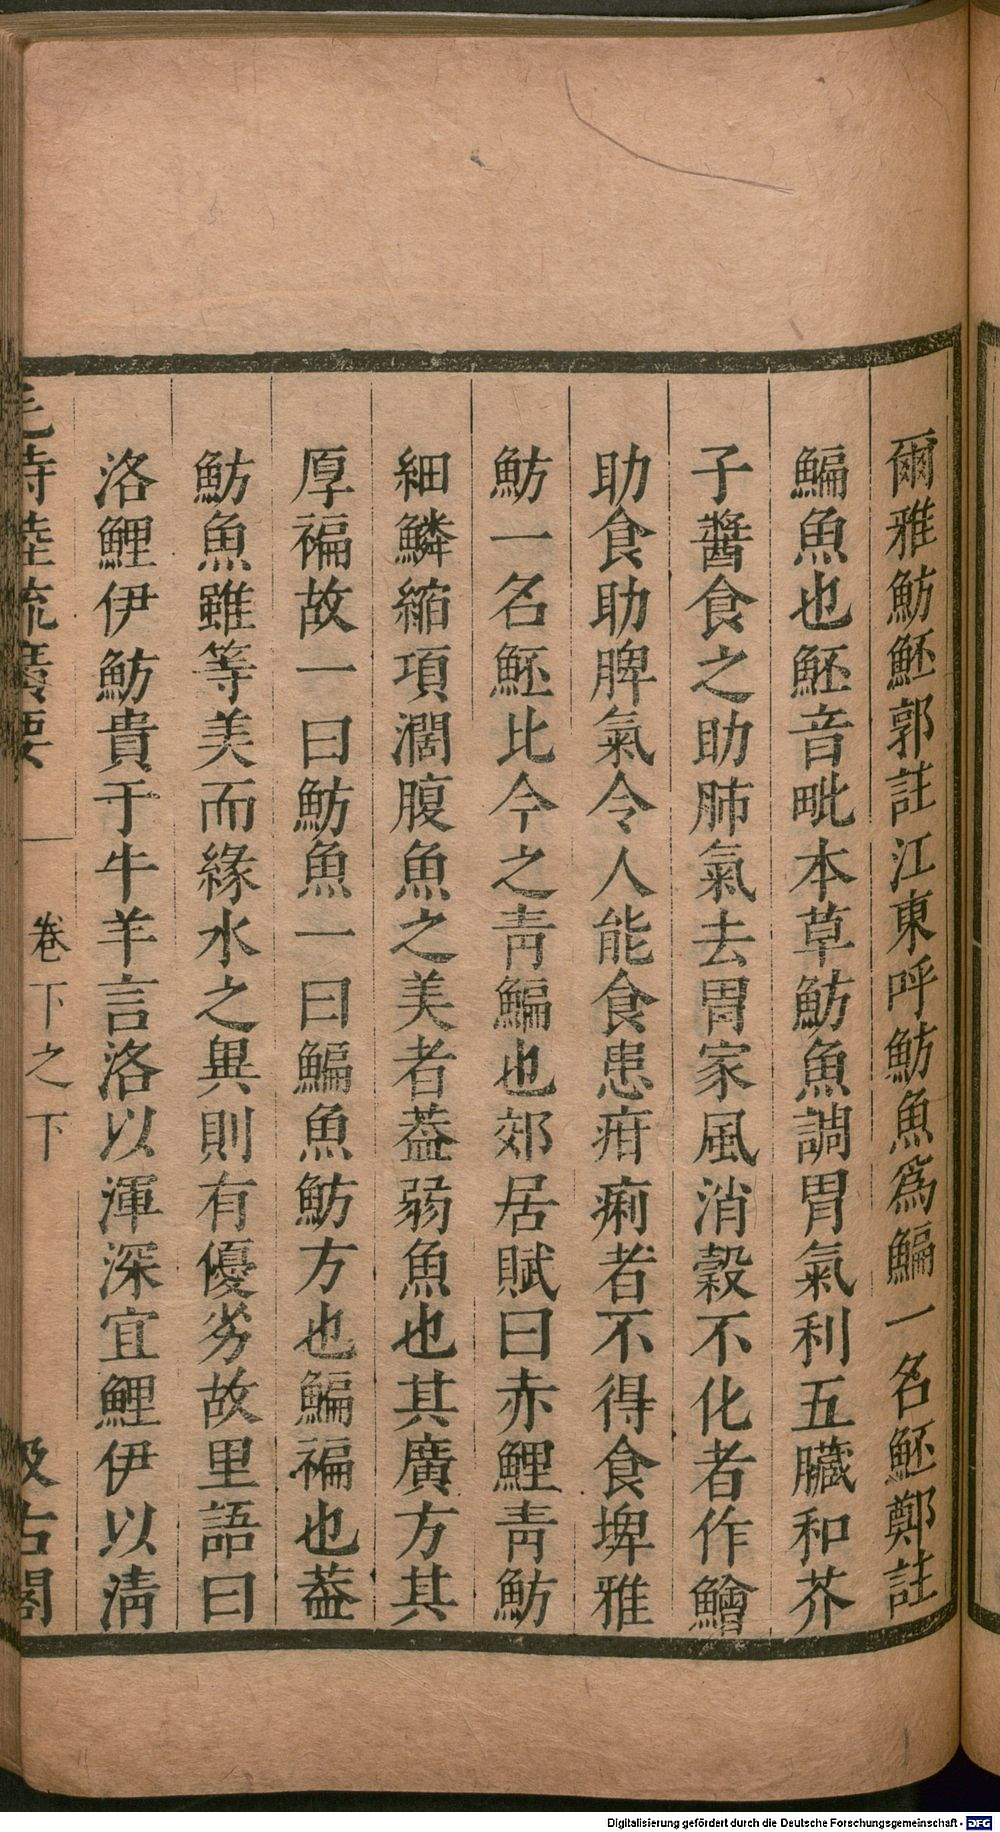 爾雅魴魾郭註江東呼魴魚爲鯿一名魾鄭註
鯿魚也魾音毗本草魴魚調胃氣利五臟和芥
子醬食之助肺氣去胃家風消穀不化者作鱠
助食助脾氣令人能食患疳痢者不得食埤雅
魴一名魾比今之青鯿也郊居賦曰赤鯉青魴
細鱗縮項濶腹魚之美者葢弱魚也其廣方其
厚褊故一曰魴魚一曰鯿魚魴方也鯿褊也葢
魴魚雖等美而緣水之異則有優劣故里語曰
洛鯉伊魴貴于牛羊言洛以渾深宜鯉伊以淸
毛詩陸疏廣要 卷下之下 汲古閣
Digitalisierung gefördert durch die Deutsche Forschungsgemeinschaft - DFG